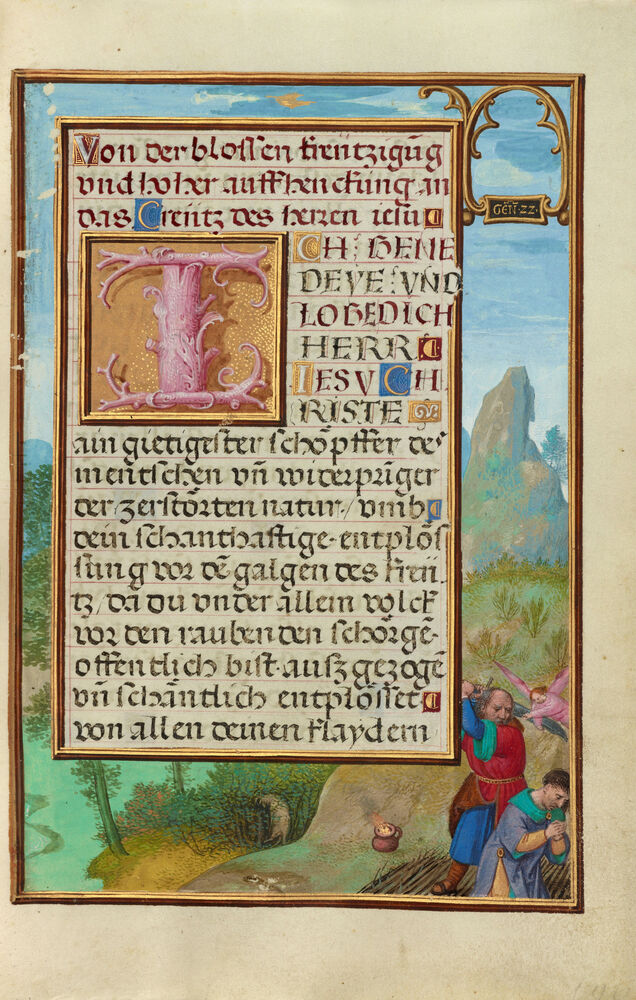 Von der blossen kreützigūg
vnd hoher auffhenckung an
das Creütz des herren iesu
GEN̄·22·
ICH BENE
DEYE VND
LOBE DICH
HERR
IESV CH
RISTE
ain gietigester schöpffer des
mentschen vn̄ widerpringer
der zerstörten natur / vmb
dein schanthaftige entplös
sung vor dē galgen des kreü
tz / da du vnder allem volck
vor den raubenden schörgē
offentlich bist ausz gezogē
vn̄ schäntlich entplösset
von allen deinen klaydern